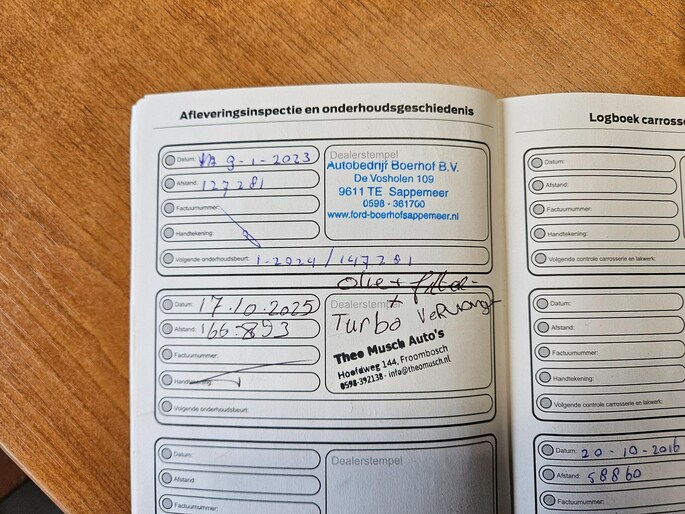 Afleveringsinspectie en onderhoudsgeschiedenis
Datum: 9-1-2023
Afstand: 127281
Factuurnummer:
Handtekening:
Volgende onderhoudsbeurt: 1-2024 / 147281
Dealerstempel
Autobedrijf Boerhof B.V.
De Vosholen 109
9611 TE Sappemeer
0598 - 361700
www.ford-boerhofsappemeer.nl
olie + filter
+
Datum: 17.10.2025
Afstand: 166.893
Factuurnummer:
Handtekening:
Volgende onderhoudsbeurt:
Dealerstempel
Turbo Vervangen
Theo Musch Auto's
Hoofdweg 144, Froombosch
0598-392138 - info@theomusch.nl
Datum:
Afstand:
Factuurnummer:
Dealerstempel
Logboek carrosse
Datum:
Afstand:
Factuurnummer:
Handtekening:
Volgende controle carrosserie en lakwerk:
Datum:
Afstand:
Factuurnummer:
Handtekening:
Volgende controle carrosserie en lakwerk:
Datum: 20-10-2016
Afstand: 58860
Factuurnummer: